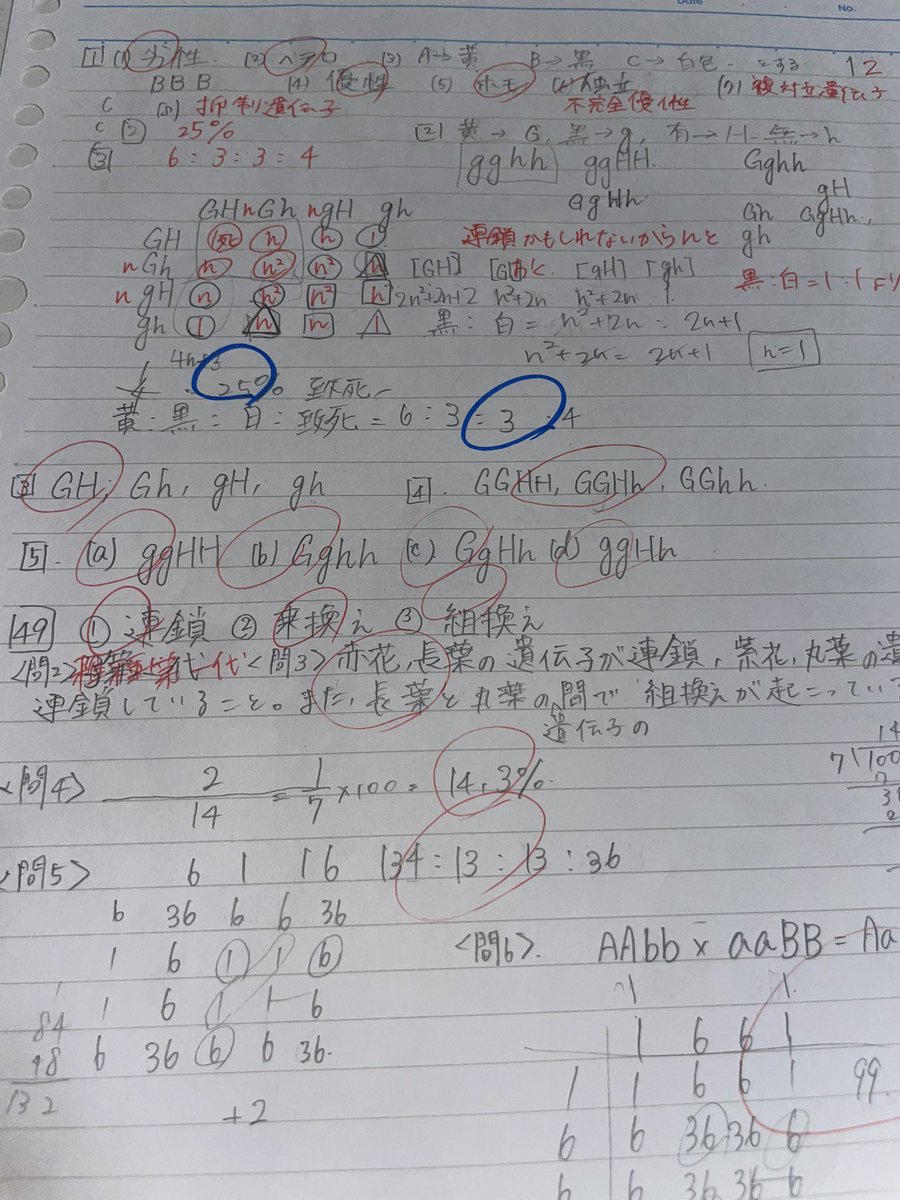 Date
No.
[1] (1) 劣性 (2) ヘテロ (3) A→黄 B→黒 C→白色 とする 12
BBB (4) 優性 (5) ホモ (6) 独立 (7) 複対立遺伝子
C 抑制遺伝子 不完全優性
C [2] 25% [2] 黄→G, 黒→g, 有→H 無→h
[3] 6:3:3:4 gghh ggHH Gghh
GgHh gH
Gh GgHh,
GH nGh ngH gh gh
GH 死 n n 1 連鎖かもしれないからnと
nGh n n² n² n [GH] [gH] [gh] 黒:白=1:1より
ngH n n² n² n 2n²+2n+2 n²+2n n²+2n 1
gh 1 n n 1 黒:白=n²+2n=2n+1
4n+3 n²+2n=2n+1 n=1
25% 致死
黄:黒:白:致死=6:3:3:4
[3] GH, Gh, gH, gh [4]. GGHH, GGHh, GGhh.
[5]. (a) ggHH (b) Gghh (c) GgHh (d) ggHh
[49] ① 連鎖 ② 乗換え ③ 組換え
<問2> <問3> 赤花,長葉の遺伝子が連鎖,紫花,丸葉の遺
連鎖していること。また,長葉と丸葉の間で組換えが起こってい
遺伝子の
14
<問4> 2/14 = 1/7 ×100= 14.3% 7)100
<問5> 6 1 1 6 134:13:13:36
6 36 6 6 36
1 6 1 1 6 <問6>. AAbb × aaBB = Aa
1 6 1 1 6
84
48 6 36 6 6 36.
132
+2
1 6 6 1
1 1 6 6 1 99.
6 6 36 36 6
6 6 36 36 6